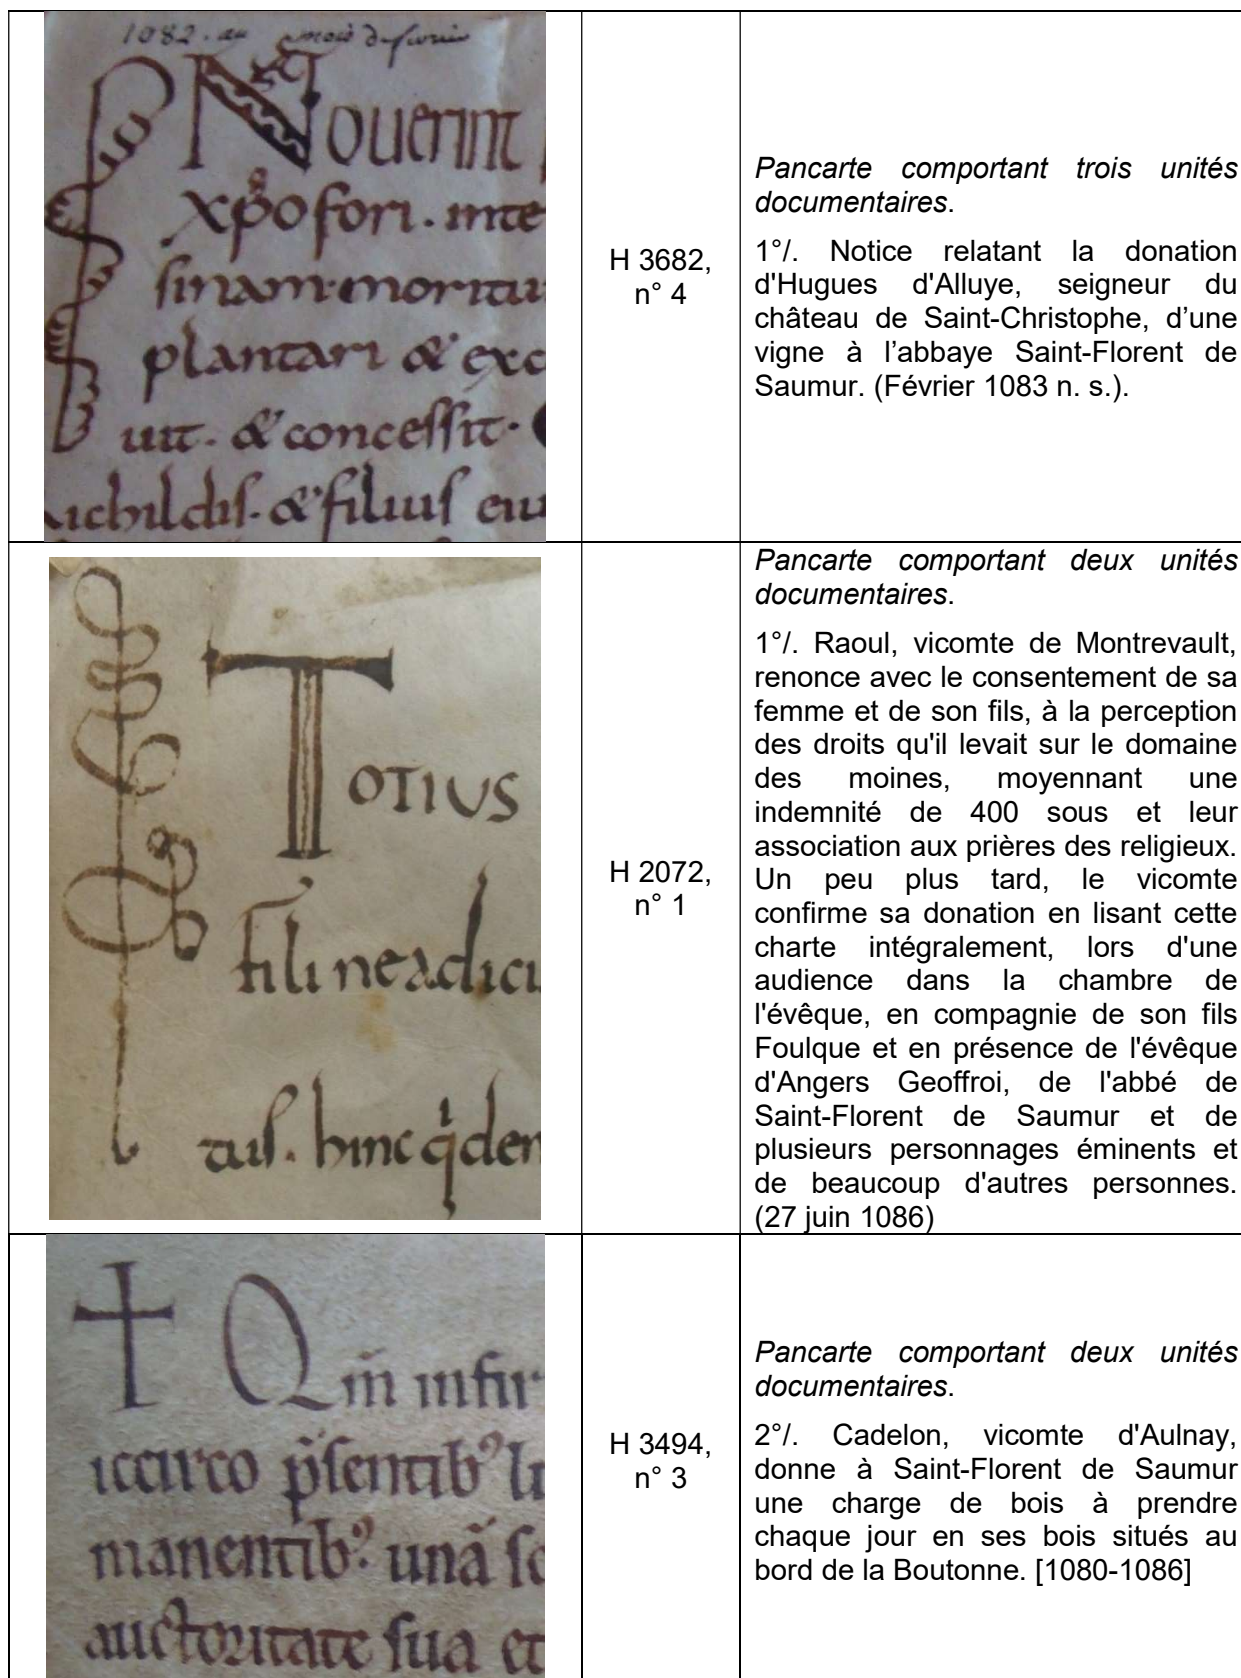 1082. au mois de fevrier
Nouerint
xp̄ofori. inte
sinam. moritur
plantari & exc
uit. & concessit.
Richildis. & filius eiu
H 3682,
n° 4
Pancarte comportant trois unités
documentaires.
1°/. Notice relatant la donation
d'Hugues d'Alluye, seigneur du
château de Saint-Christophe, d’une
vigne à l’abbaye Saint-Florent de
Saumur. (Février 1083 n. s.).
TOTIUS
fili neadici
tus. hinc q̇den
H 2072,
n° 1
Pancarte comportant deux unités
documentaires.
1°/. Raoul, vicomte de Montrevault,
renonce avec le consentement de sa
femme et de son fils, à la perception
des droits qu'il levait sur le domaine
des moines, moyennant une
indemnité de 400 sous et leur
association aux prières des religieux.
Un peu plus tard, le vicomte
confirme sa donation en lisant cette
charte intégralement, lors d'une
audience dans la chambre de
l'évêque, en compagnie de son fils
Foulque et en présence de l'évêque
d'Angers Geoffroi, de l'abbé de
Saint-Florent de Saumur et de
plusieurs personnages éminents et
de beaucoup d'autres personnes.
(27 juin 1086)
Qm̄ infir
iccirco p̄sentibꝰ
manentibꝰ unā
auctoritate sua et
H 3494,
n° 3
Pancarte comportant deux unités
documentaires.
2°/. Cadelon, vicomte d'Aulnay,
donne à Saint-Florent de Saumur
une charge de bois à prendre
chaque jour en ses bois situés au
bord de la Boutonne. [1080-1086]